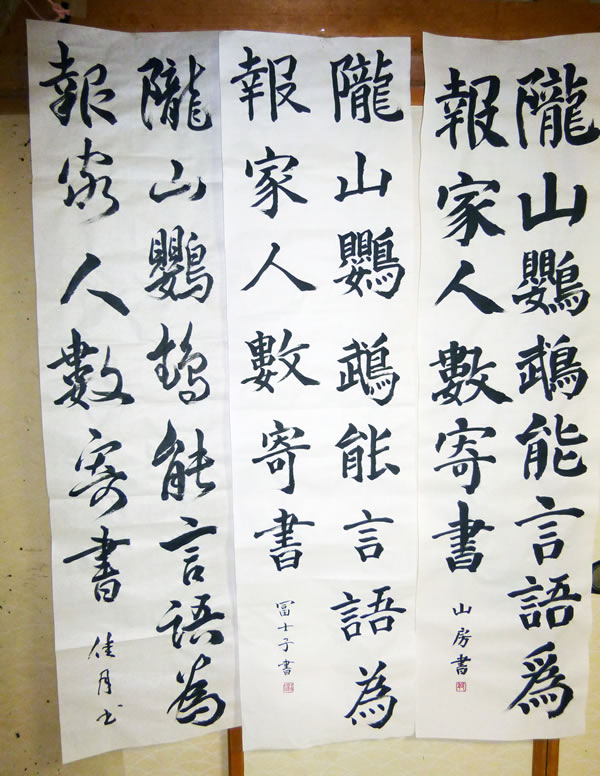 隴山鸚鵡能言語為
報家人數寄書
山房書
隴山鸚鵡能言語為
報家人數寄書
冨士子書
隴山鸚鵡能言語為
報家人數寄書
佳月書